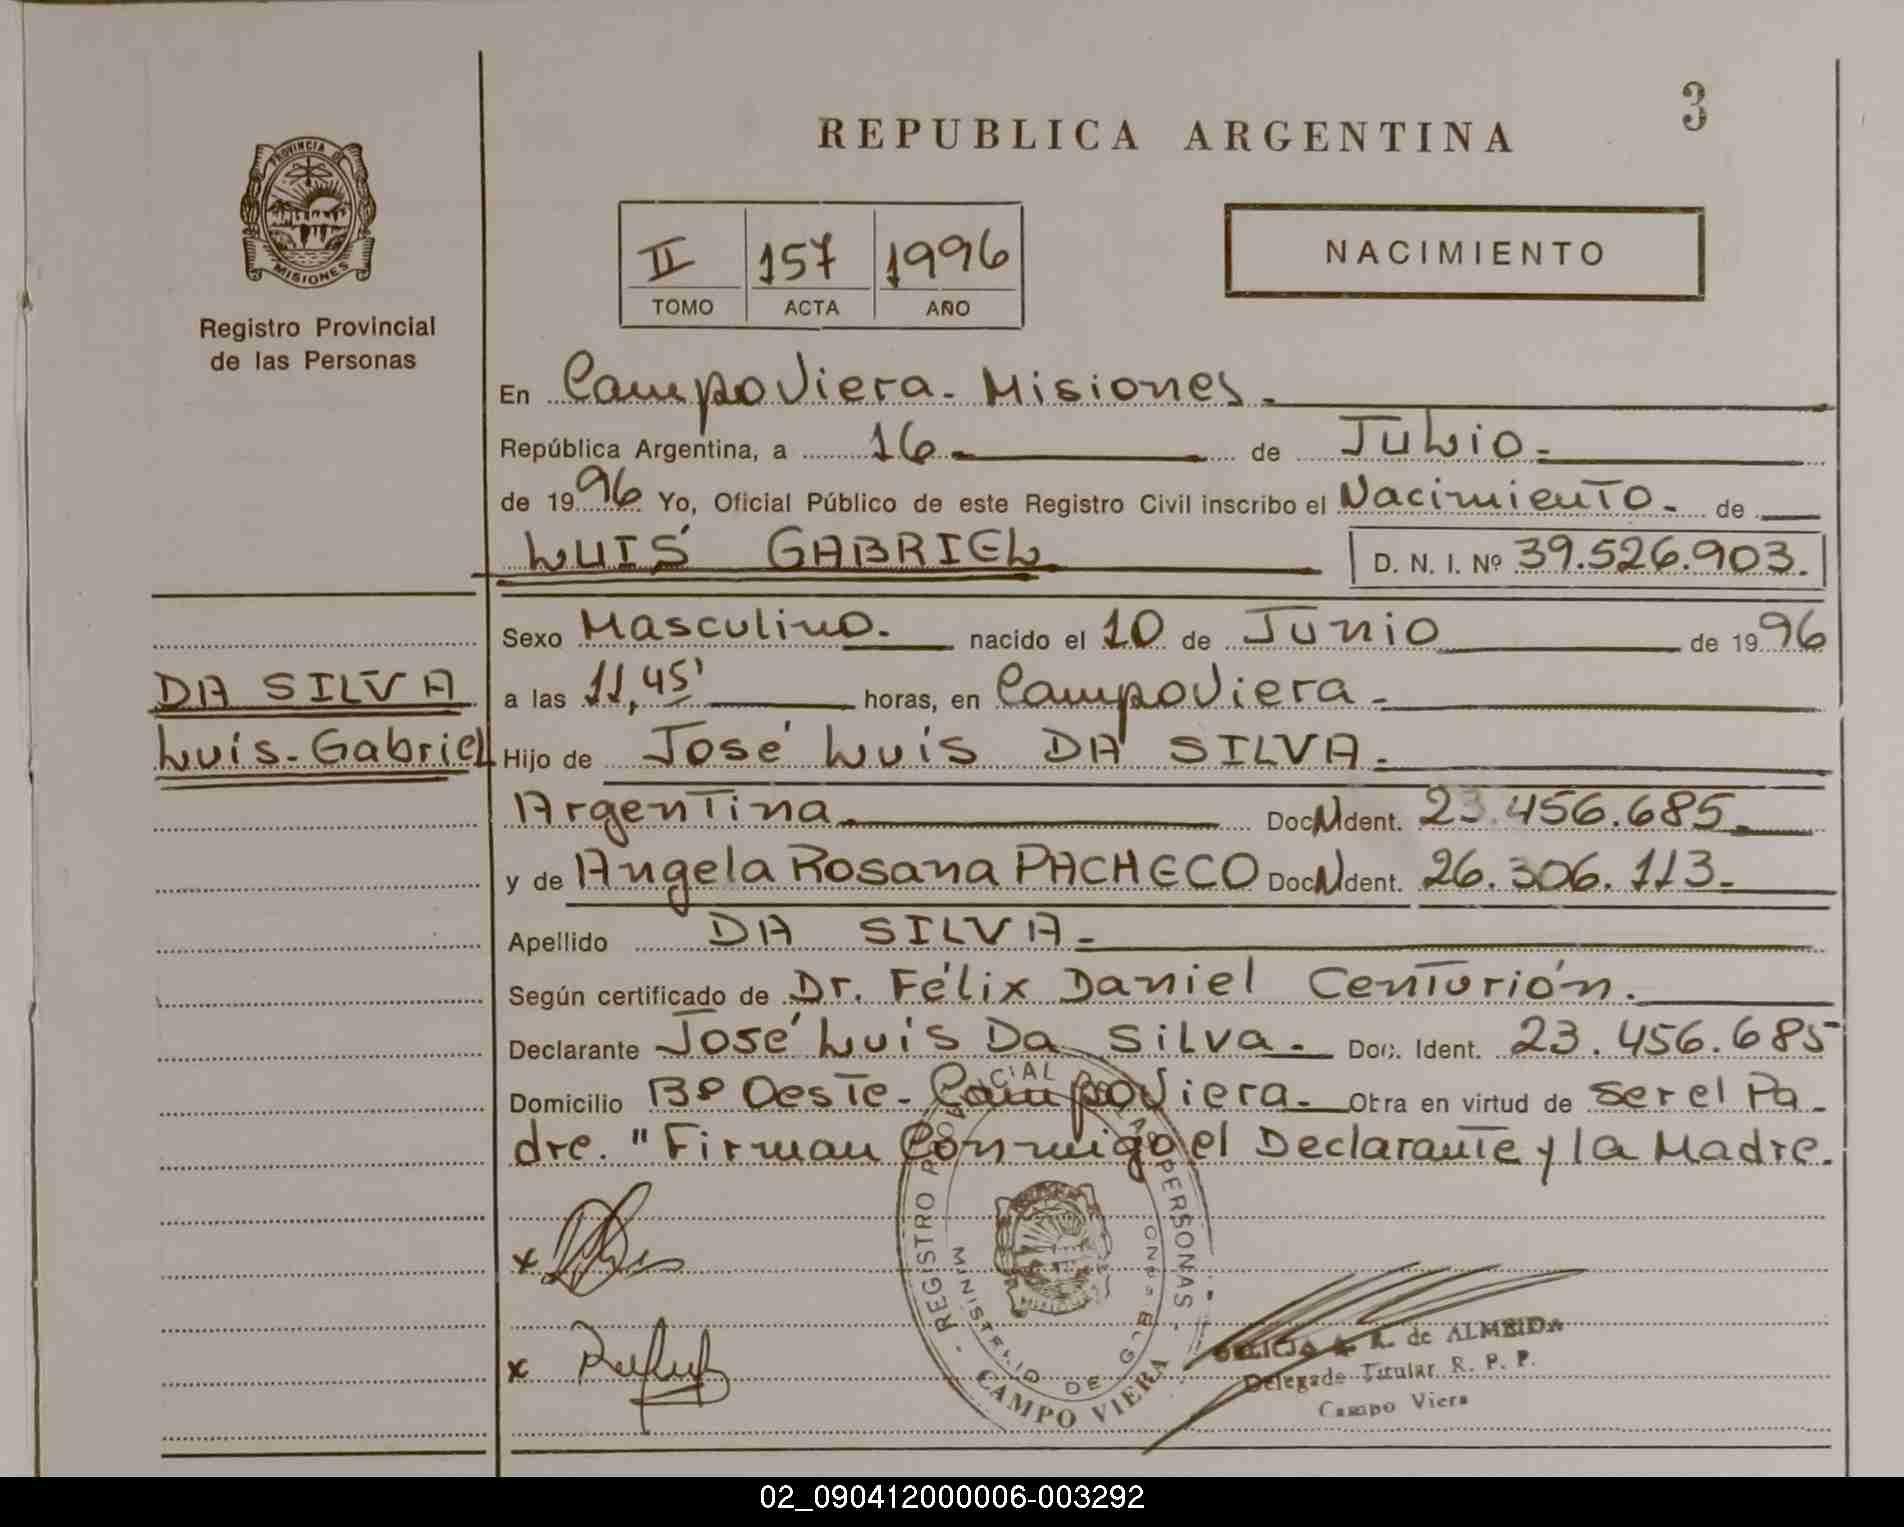 3
REPUBLICA ARGENTINA
PROVINCIA DE
MISIONES
Registro Provincial
de las Personas
II 157 1996
TOMO ACTA AÑO
NACIMIENTO
En Campo Viera - Misiones -
República Argentina, a 16 de Julio -
de 1996 Yo, Oficial Público de este Registro Civil inscribo el Nacimiento - de
LUIS GABRIEL D. N. I. Nº 39.526.903.
Sexo Masculino. nacido el 10 de Junio de 1996
DA SILVA
Luis - Gabriel
a las 11,45' horas, en Campo Viera -
Hijo de José Luis DA SILVA -
Argentina Doc. N Ident. 23.456.685
y de Angela Rosana PACHECO Doc. N Ident. 26.306.113 -
Apellido DA SILVA -
Según certificado de Dr. Félix Daniel Centurión.
Declarante José Luis Da Silva - Doc. Ident. 23.456.685
Domicilio Bº Oeste - Campo Viera - Obra en virtud de ser el Pa-
dre. " Firman Conmigo el Declarante y la Madre.
x
x
- REGISTRO PERSONAS -
MINISTERIO DE
CAMPO VIERA
de ALMEIDA
Delegado Titular R. P. P.
Campo Viera
02_090412000006-003292